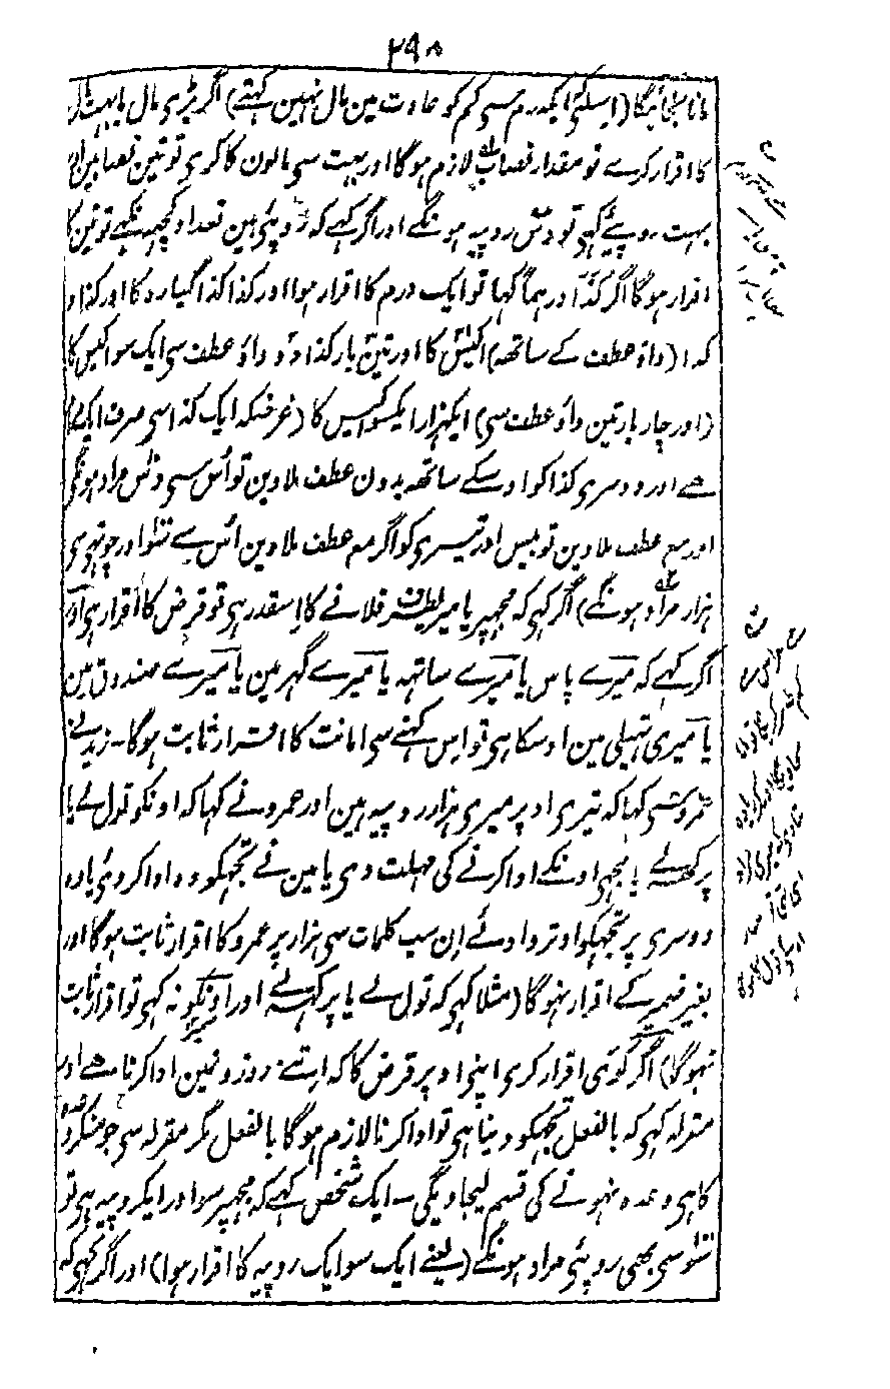 ۲۹۸
مانا نجائیگا (اسلئے ایکدرم سی کم کو عادت مین مال نہین کہتے) اگر بڑی مال یا بہت مال
کا اقرار کرے تو مقدار نصاب لازم ہوگا اور بہت سی مالون کا کری تو تین نصابین اور
بہت روپیئے کہی تو دس روپیہ ہونگے اور اگر کہے کہ روپئی ہین تعداد کچہہ نکہے تو تین کا
اقرار ہوگا اگر کذا درہماً کہا تو ایک درم کا اقرار ہوا اور کذا کذا گیارہ کا اور کذا و
کذا (واؤ عطف کے ساتھہ) اکیس کا اور تین بار کذا دو واؤ عطف سی ایک سو اکیس کا
(اور چار بار تین واؤ عطف سی) ایکہزار ایکسو اکیس کا (غرضکہ ایک کذا سی صرف ایک
ہے اور دوسری کذا کو اوسکے ساتھہ بدون عطف ملاوین تو اس سی دس مراد ہونگی
اور مع عطف ملاوین تو بیس اور تیسری کو اگر مع عطف ملاوین اس سے سو اور چوتہی سی
ہزار مراد ہونگے) اگر کہی کہ مجہپر یا میریطرف فلانے کا اسقدر ہی تو قرض کا اقرار ہی اور
اگر کہے کہ میرے پاس یا میرے ساتہہ یا میرے گہر مین یا میرے صندوق مین
یا میری تہیلی مین اوسکا ہی تو اس کہنے سی امانت کا اقرار ثابت ہوگا۔ زید نے
عمرو سی کہا کہ تیری اوپر میری ہزار روپیہ ہین اور عمرو نے کہا کہ اونکو تول لے یا
پرکھہ لے یا مجہی اونکے ادا کرنے کی مہلت دی یا مین نے تجہکو وہ ادا کر دئی یا وہ
دوسری پر تجہکو اوتروا دئے ان سب کلمات سی ہزار پر عمرو کا اقرار ثابت ہوگا اور
بغیر ضمیر کے اقرار نہوگا (مثلا کہی کہ تول لے یا پرکہہ لے اور اونکو نہ کہی تو اقرار ثابت
نہوگا) اگر کوئی اقرار کری اپنی اوپر قرض کا کہ اتنے روزونمین ادا کرنا ہے اور
مقرلہ کہی کہ بالفعل تجہکو دینا ہی تو ادا کرنا لازم ہوگا بالفعل مگر مقرلہ سی جو منکر وعدہ
کا ہی وعدہ نہونے کی قسم لیجاویگی۔ ایک شخص کہے کہ مجہپر سو اور ایکروپیہ ہی تو
سو سی بھی روپئی مراد ہونگے (یعنے ایک سو ایک روپیہ کا اقرار ہوا) اور اگر کہی کہ